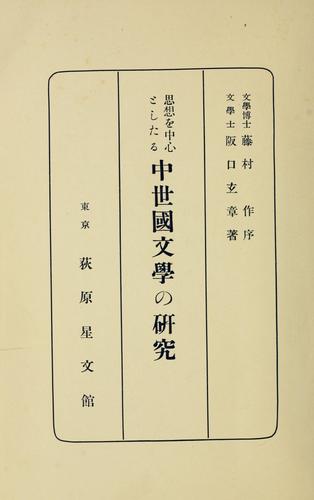 文學博士 藤村 作序
文學士 阪口玄章著
思想を中心
としたる
中世國文學の研究
東京 荻原星文館